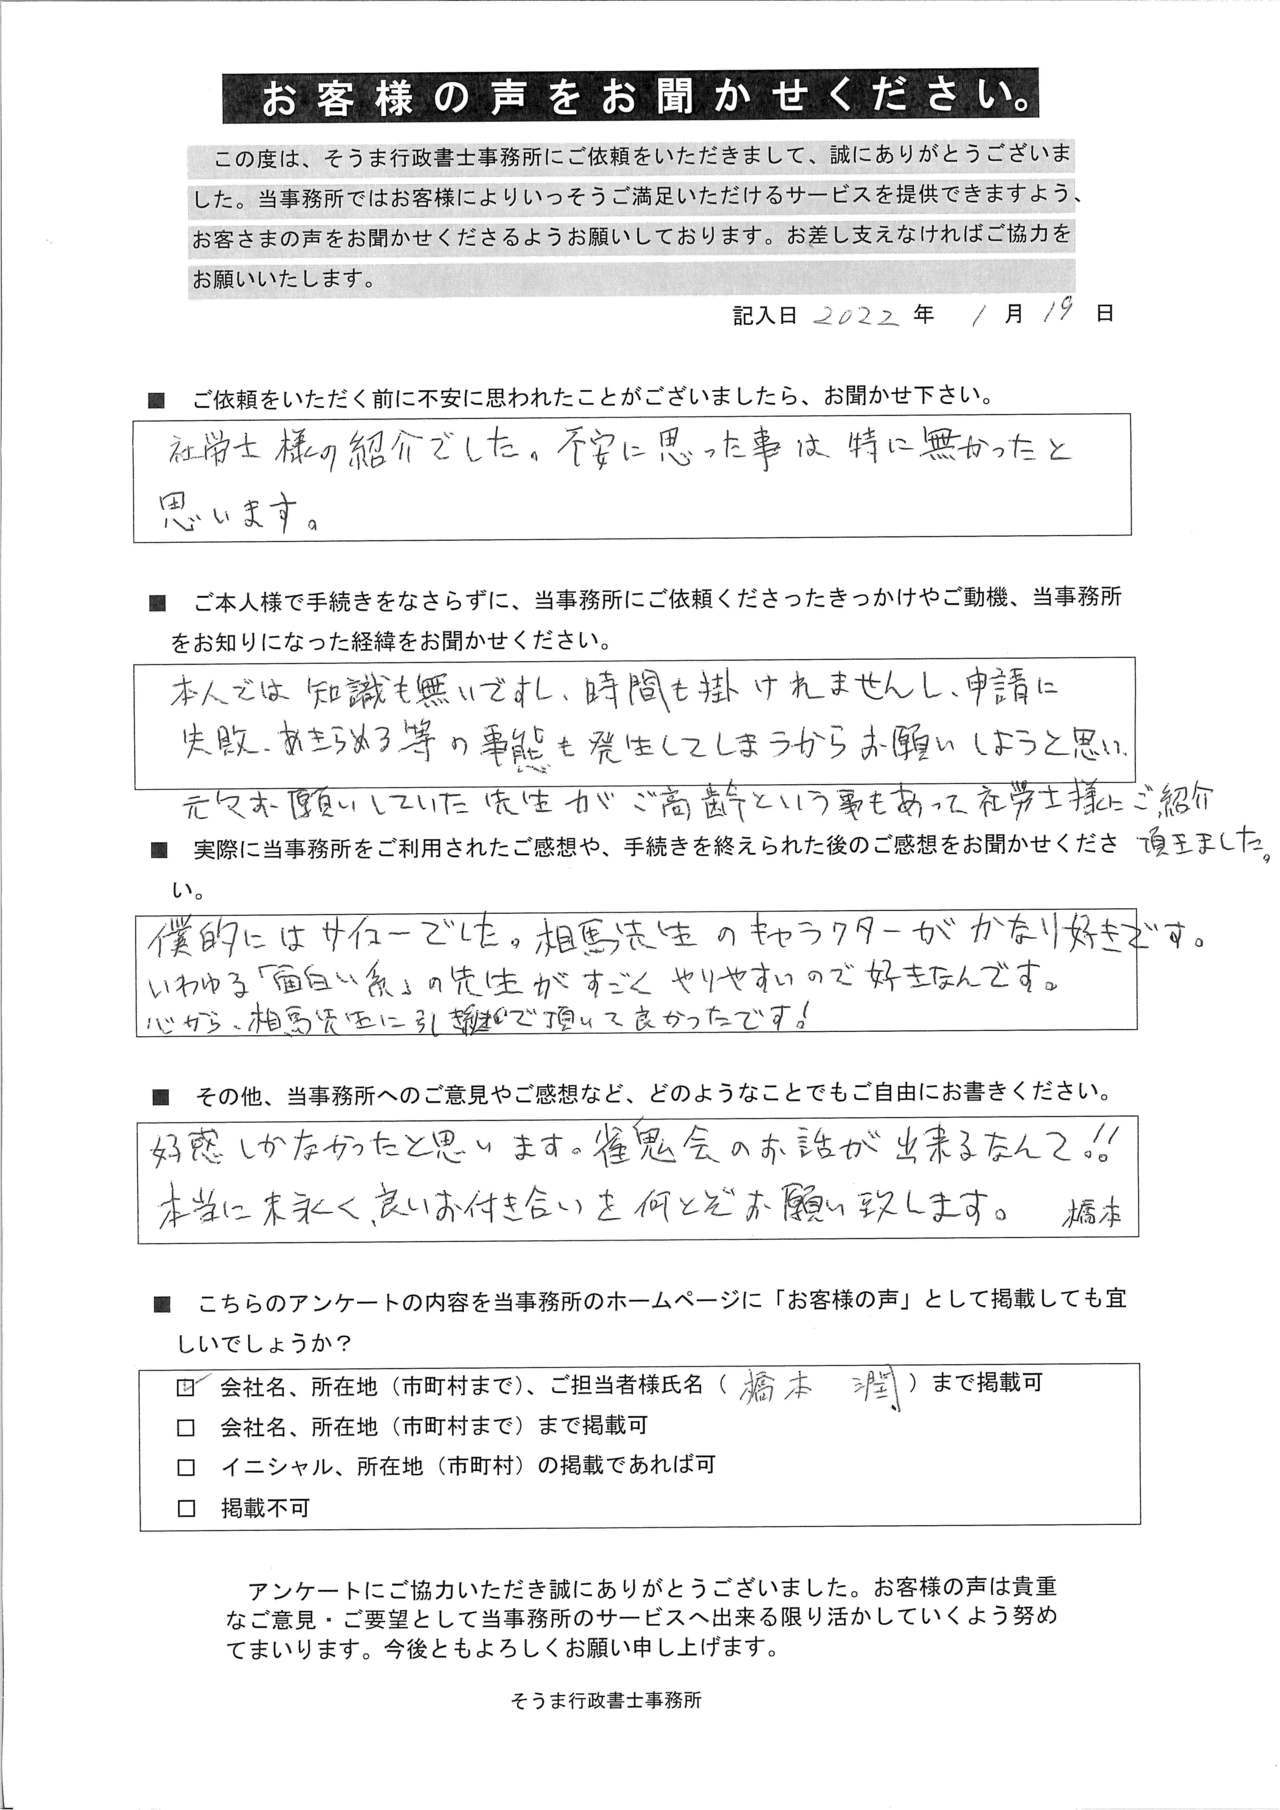 お客様の声をお聞かせください。
この度は、そうま行政書士事務所にご依頼をいただきまして、誠にありがとうございま
した。当事務所ではお客様によりいっそうご満足いただけるサービスを提供できますよう、
お客さまの声をお聞かせくださるようお願いしております。お差し支えなければご協力を
お願いいたします。
記入日 2022 年 1 月 19 日
■ ご依頼をいただく前に不安に思われたことがございましたら、お聞かせ下さい。
社労士様の紹介でした。不安に思った事は特に無かったと
思います。
■ ご本人様で手続きをなさらずに、当事務所にご依頼くださったきっかけやご動機、当事務所
をお知りになった経緯をお聞かせください。
本人では知識も無いですし、時間も掛けれませんし、申請に
失敗、あきらめる等の事態も発生してしまうからお願いしようと思い、
元々お願いしていた先生がご高齢という事もあって社労士様にご紹介
頂きました。
■ 実際に当事務所をご利用されたご感想や、手続きを終えられた後のご感想をお聞かせくださ
い。
僕的にはサイコーでした。相馬先生のキャラクターがかなり好きです。
いわゆる「面白い系」の先生がすごくやりやすいので好きなんです。
心から、相馬先生に引き継いで頂いて良かったです!
■ その他、当事務所へのご意見やご感想など、どのようなことでもご自由にお書きください。
好感しかなかったと思います。雀鬼会のお話が出来るなんて!!
本当に末永く、良いお付き合いを何とぞお願い致します。 橋本
■ こちらのアンケートの内容を当事務所のホームページに「お客様の声」として掲載しても宜
しいでしょうか？
☑ 会社名、所在地（市町村まで）、ご担当者様氏名（ 橋本 潤 ）まで掲載可
□ 会社名、所在地（市町村まで）まで掲載可
□ イニシャル、所在地（市町村）の掲載であれば可
□ 掲載不可
アンケートにご協力いただき誠にありがとうございました。お客様の声は貴重
なご意見・ご要望として当事務所のサービスへ出来る限り活かしていくよう努め
てまいります。今後ともよろしくお願い申し上げます。
そうま行政書士事務所